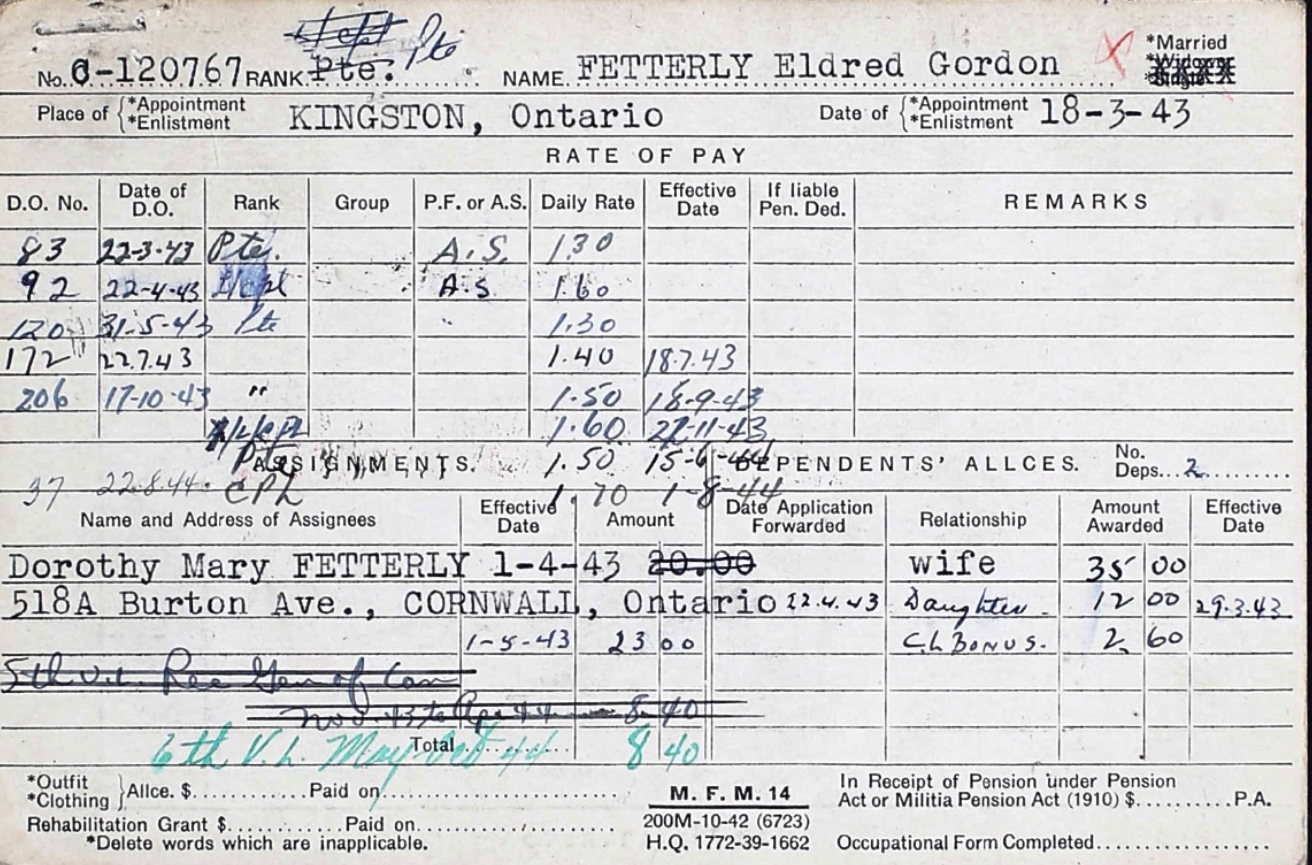 L/Cpl Pte
No. C-120767 RANK Pte. NAME FETTERLY Eldred Gordon *Married *Widower *Single
Place of {*Appointment *Enlistment KINGSTON, Ontario Date of {*Appointment *Enlistment 18-3-43
RATE OF PAY
D.O. No. Date of D.O. Rank Group P.F. or A.S. Daily Rate Effective Date If liable Pen. Ded. REMARKS
83 22-3-43 Pte. A.S. 1.30
92 22-4-43 L/Cpl A.S 1.60
120 31-5-43 Pte " 1.30
172 " 22.7.43 1.40 18.7.43
206 17-10-43 " 1.50 18-9-43
A/L/Cpl 1.60 22-11-43
Pte 1.50 15-6-44
ASSIGNMENTS. DEPENDENTS' ALLCES. No. Deps. 2
37 22.8.44. CPL 1.70 1-8-44
Name and Address of Assignees Effective Date Amount Date Application Forwarded Relationship Amount Awarded Effective Date
Dorothy Mary FETTERLY 1-4-43 20.00 wife 35 00
518A Burton Ave., CORNWALL, Ontario 22.4.43 Daughter 12 00 29.3.43
1-5-43 23 00 C.L BONUS. 2 60
5th V.L. Rec Gen of Can
Nov. 43 to Apr 44 — 8 40
6th V.L. May-Oct 44 Total 8 40
*Outfit *Clothing } Allce. $ Paid on M. F. M. 14 In Receipt of Pension under Pension
Act or Militia Pension Act (1910) $ P.A.
Rehabilitation Grant $ Paid on 200M-10-42 (6723)
*Delete words which are inapplicable. H.Q. 1772-39-1662 Occupational Form Completed